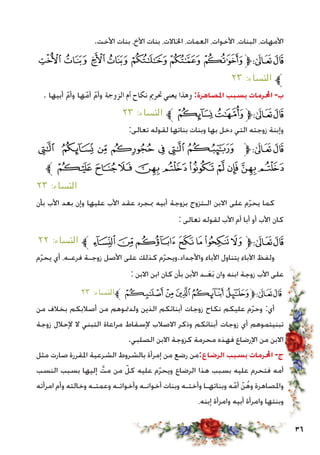 الأمهات، البنات، الأخوات، العمات، الخالات، بنات الأخ، بنات الأخت.
قَالَ تَعَالَىٰ: ﴿ وَأَخَوَٰتُكُمْ وَعَمَّٰتُكُمْ وَخَٰلَٰتُكُمْ وَبَنَاتُ ٱلْأَخِ وَبَنَاتُ ٱلْأُخْتِ
﴾ النساء: ٢٣
ب- المحرمات بسبب المصاهرة: وهذا يعني تحريم نكاح أم الزوجة وأمّ أمّها وأمّ أبيها .
قَالَ تَعَالَىٰ: ﴿ وَأُمَّهَٰتُ نِسَآئِكُمْ ﴾ النساء: ٢٣
وإبنة زوجته التي دخل بها وبنات بناتها لقوله تعالى:
قَالَ تَعَالَىٰ: ﴿ وَرَبَٰٓئِبُكُمُ ٱلَّٰتِى فِى حُجُورِكُم مِّن نِّسَآئِكُمُ ٱلَّٰتِى
دَخَلْتُم بِهِنَّ فَإِن لَّمْ تَكُونُوا۟ دَخَلْتُم بِهِنَّ فَلَا جُنَاحَ عَلَيْكُمْ ﴾
النساء: ٢٣
كما يحرّم على الابن التزوج بزوجة أبيه بمجرد عقد الأب عليها وإن بعد الأب بأن
كان الأب أو أبا أم الأب لقوله تعالى :
قَالَ تَعَالَىٰ: ﴿ وَلَا تَنكِحُوا۟ مَا نَكَحَ ءَابَآؤُكُم مِّنَ ٱلنِّسَآءِ ﴾ النساء: ٢٢
ولفظ الأباء يتناول الأباء والأجداد،ويحرّم كذلك على الأصل زوجة فرعه. أي يحرّم
على الأب زوجة ابنه وإن بَعُد الأبن بأن كان ابن الابن :
قَالَ تَعَالَىٰ: ﴿ وَحَلَٰٓئِلُ أَبْنَآئِكُمُ ٱلَّذِينَ مِنْ أَصْلَٰبِكُمْ ﴾ النساء: ٢٣
أي: وحرّم عليكم نكاح زوجات أبنائكم الذين ولدتموهم من أصلابكم بخلاف من
تبنيتموهم أي زوجات أبنائكم وذكر الاصلاب لإسقاط مراعاة التبني لا لإحلال زوجة
الابن من الإرضاع فهذه محرمة كزوجة الابن الصلبي.
ج- المحرمات بسبب الرضاع:من رضع من إمرأة بالشروط الشرعية المقررة صارت مثل
أمه فتحرم عليه بسبب هذا الرضاع ويحرّم عليه كلّ من متّ إليها بسبب النسب
والمصاهرة وهُنّ أمّه وبناتها وأخته وبنات أخواته وأخواته وعمته وخالته وأم امرأته
وبنتها وامرأة أبيه وامرأة إبنه.
٣٦